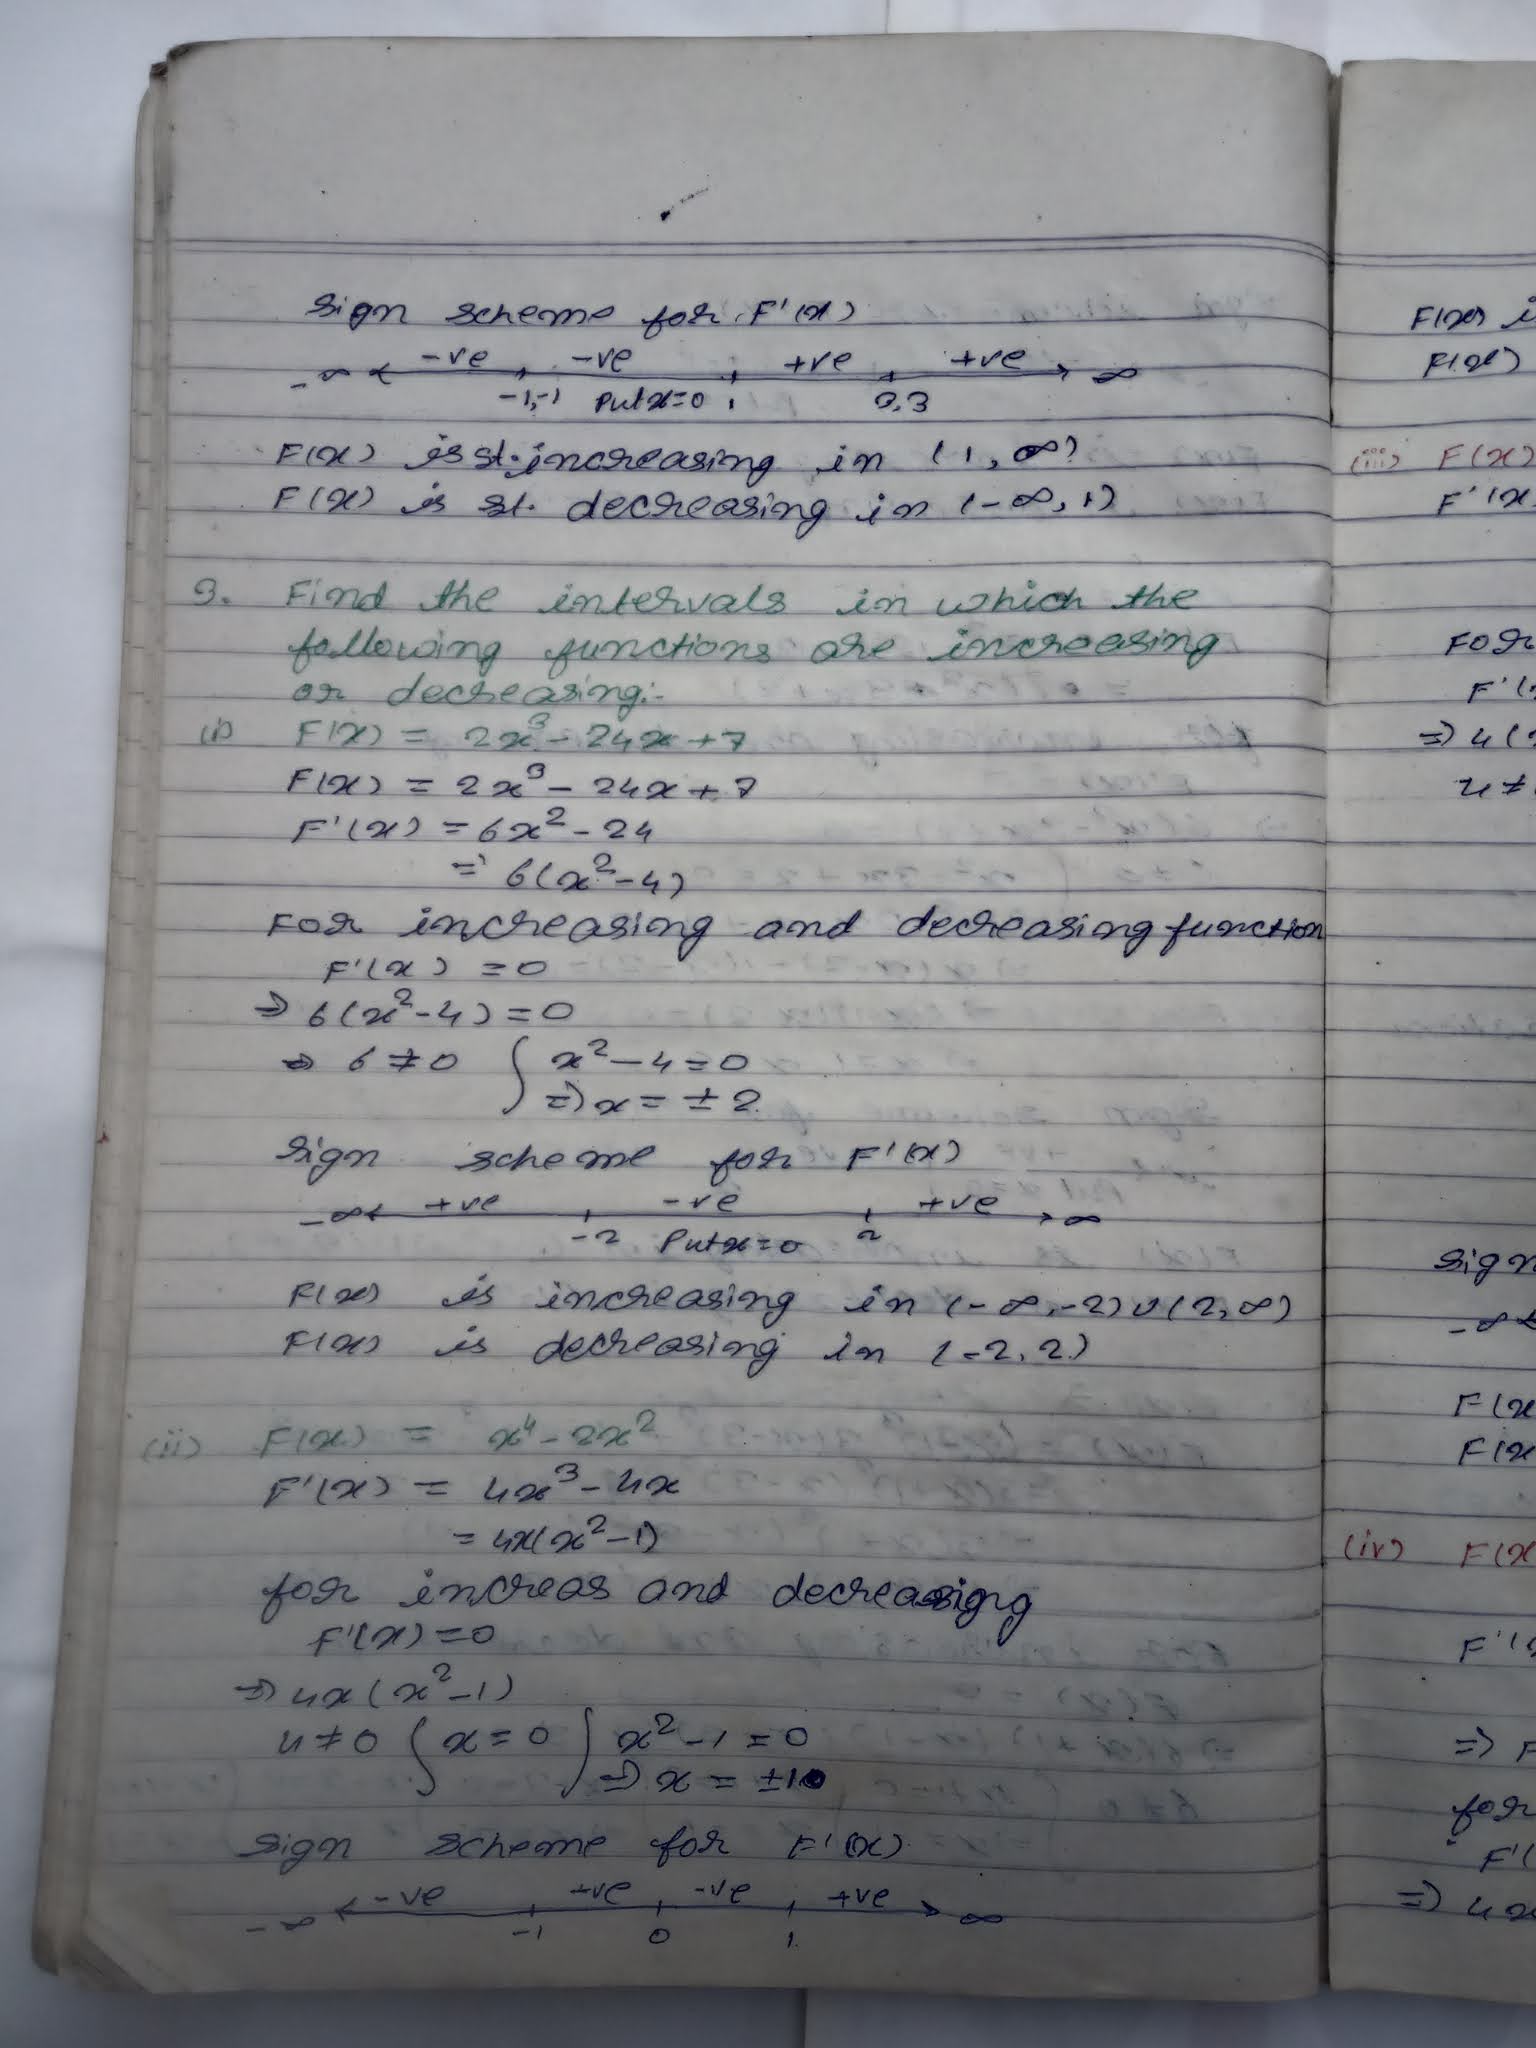 Sign scheme for F'(x)
-∞ -ve -ve +ve +ve ∞
-1,-1 Put x=0 1 3,3
F(x) is st. increasing in (1, ∞)
F(x) is st. decreasing in (-∞, 1)
3. Find the intervals in which the
following functions are increasing
or decreasing:-
(i) F(x) = 2x³ - 24x + 7
F(x) = 2x³ - 24x + 7
F'(x) = 6x² - 24
= 6(x² - 4)
For increasing and decreasing function
F'(x) = 0
⇒ 6(x² - 4) = 0
⇒ 6 ≠ 0 ∫ x² - 4 = 0
⇒ x = ± 2
Sign scheme for F'(x)
-∞ +ve -ve +ve ∞
-2 Put x=0 2
F(x) is increasing in (-∞, -2) ∪ (2, ∞)
F(x) is decreasing in (-2, 2)
(ii) F(x) = x⁴ - 2x²
F'(x) = 4x³ - 4x
= 4x(x² - 1)
for increas and decreasigng
F'(x) = 0
⇒ 4x(x² - 1)
4 ≠ 0 ∫ x = 0 ∫ x² - 1 = 0
⇒ x = ±1
Sign scheme for F'(x)
-∞ -ve +ve -ve +ve ∞
-1 0 1
F(x) i
F(x)
(iii) F(x)
F'(x
For
F'(
⇒ 4(
4 ≠
Sign
-∞
F(x
F(x
(iv) F(x
F'(
⇒ F
for
F'(
⇒ 4x